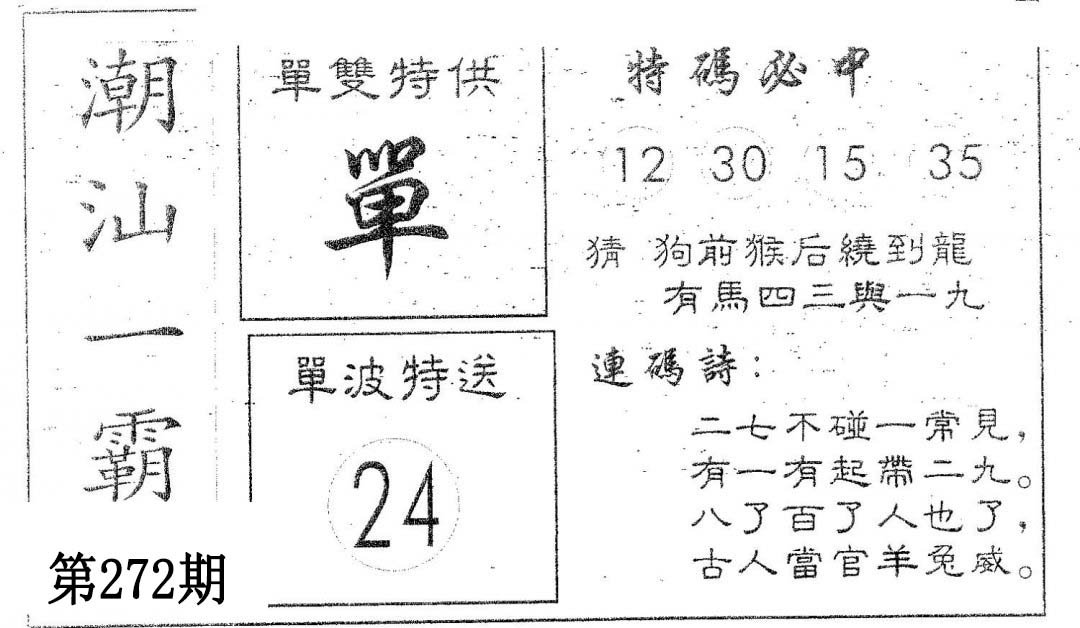 潮汕一霸
第272期
單雙特供
單
單波特送
24
特碼必中
12 30 15 35
猜 狗前猴后繞到龍
有馬四三與一九
連碼詩：
二七不碰一常見，
有一有起帶二九。
八了百了人也了，
古人當官羊兔威。